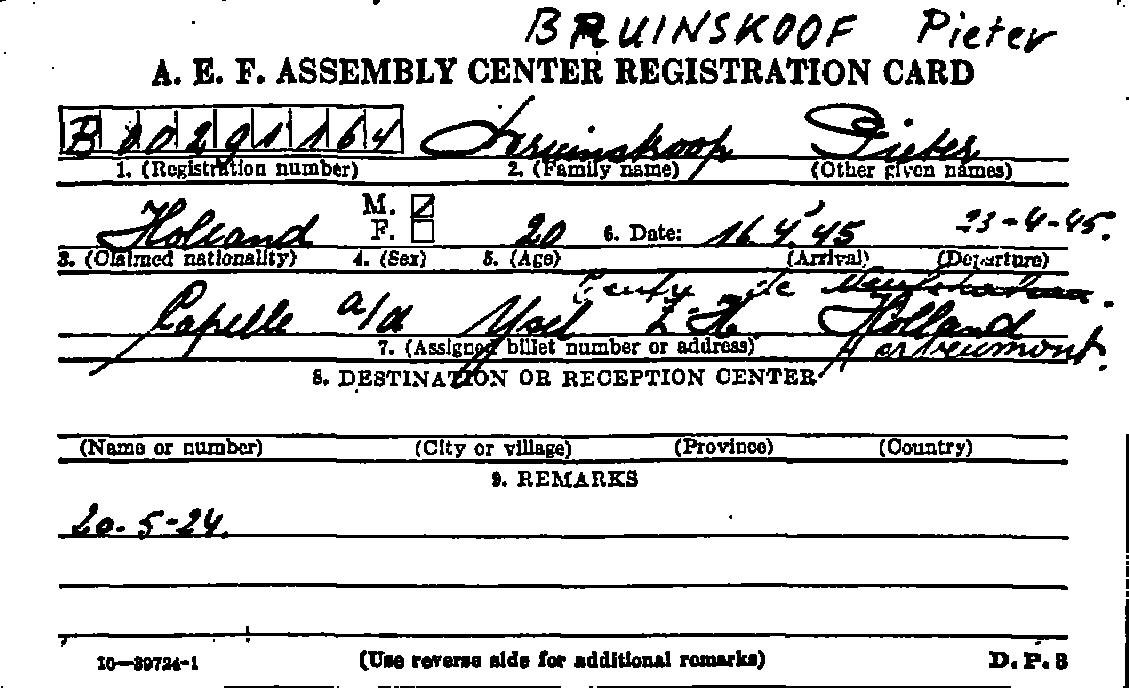 BRUINSKOOF Pieter
A. E. F. ASSEMBLY CENTER REGISTRATION CARD
B 00291164 Bruinskoop Pieter
1. (Registration number) 2. (Family name) (Other given names)
M.
Holland F. 20 6. Date: 16.4.'45 23-4-45.
3. (Claimed nationality) 4. (Sex) 5. (Age) (Arrival) (Departure)
de
Capelle a/d Ysel Z-H. Holland
7. (Assigned billet number or address)
8. DESTINATION OR RECEPTION CENTER
(Name or number) (City or village) (Province) (Country)
9. REMARKS
20-5-24.
16—39724-1 (Use reverse side for additional remarks) D. P. 3